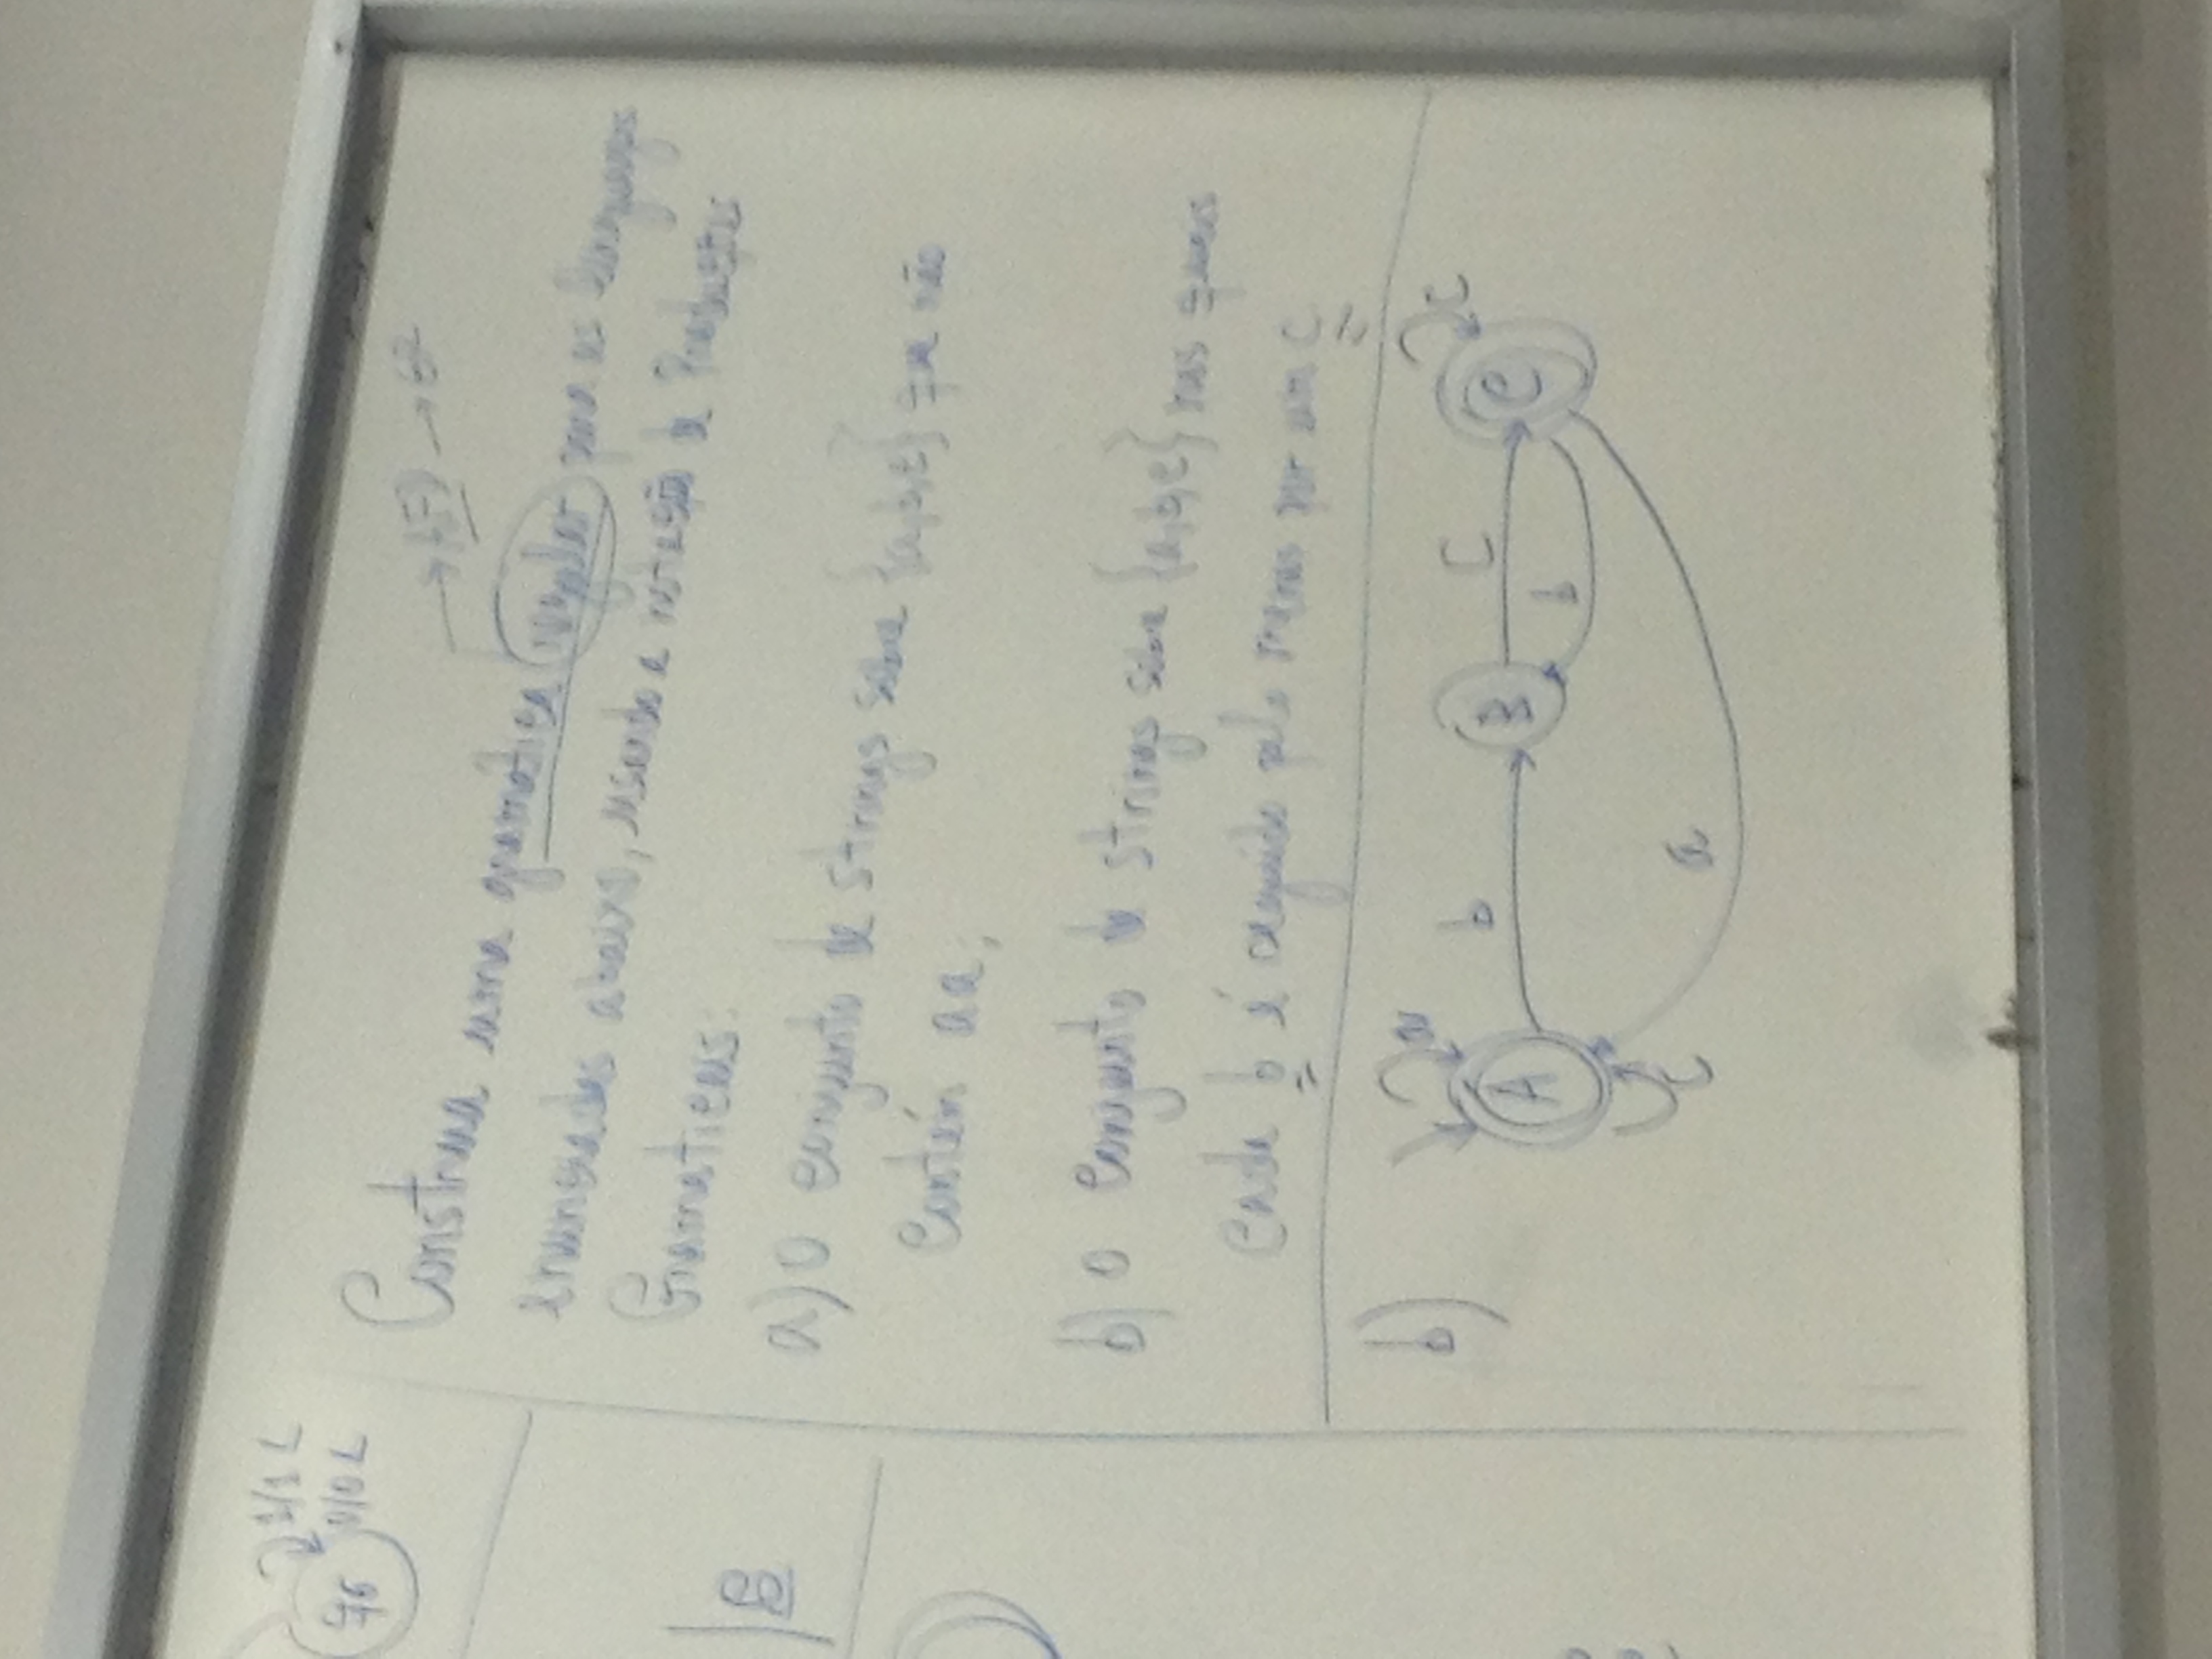 1/1 L
0/0 L
q6
B
→ AFD → GR
Construa uma gramática regular para as linguagens
enumeradas abaixo, usando a notação de Produções
Gramaticais:
a) O conjunto de strings sobre {a,b,c} que não
contém aa;
b) o conjunto de strings sobre {a,b,c} nas quais
cada b é seguido pelo menos por um c
b)
a
b
C
c
A
B
C
b
c
a